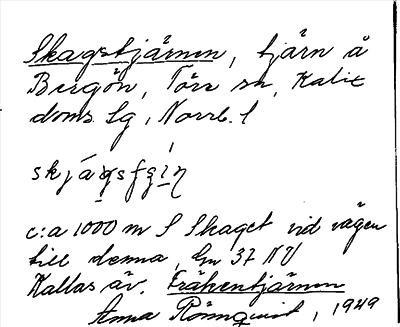 Skagstjärnen, tjärn å
Bergön, Töre sn, Kalix
doms. lg, Norrb. l
c:a 1000 m S Skaget vid vägen
till denna, Gm 37 NV
Kallas äv. Fräkentjärnen
Anna Rönnquist, 1949